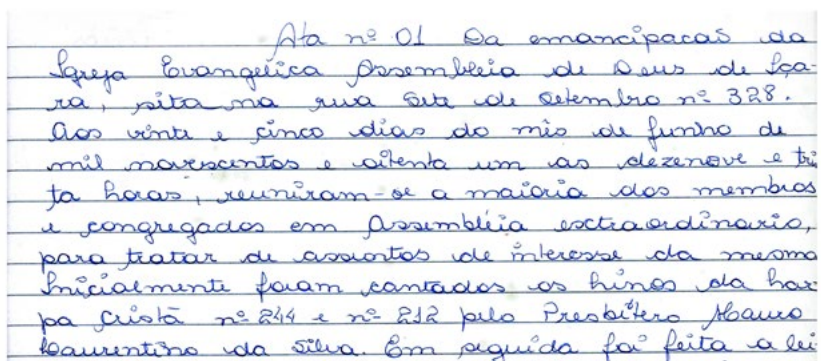 Ata nº 01 Da emancipacaõ da
Igreja Evangelica Assembleia de Deus de Iça-
ra, sita na rua Sete de Setembro nº 328.
Aos vinte e cinco dias do mês de Junho de
mil novescentos e oitenta um as dezenove e trin
ta horas, reuniram-se a maioria dos membros
e congregados em Assembléia esctraordinario,
para tratar de assuntos de interesse da mesma
Inicialmente foram cantados os hinos da har
pa Cristã nº 244 e nº 212 pelo Presbítero Mauro
Laurentino da Silva. Em seguida foi feita a lei